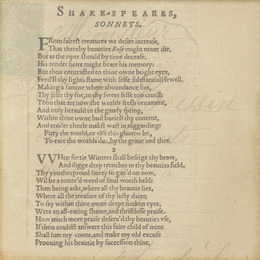 SHAKE-SPEARES,
SONNETS.
FRom fairest creatures we desire increase,
That thereby beauties Rose might neuer die,
But as the riper should by time decease,
His tender heire might beare his memory:
But thou contracted to thine owne bright eyes,
Feed'st thy lights flame with selfe substantiall fewell,
Making a famine where aboundance lies,
Thy selfe thy foe, to thy sweet selfe too cruell:
Thou that art now the worlds fresh ornament,
And only herauld to the gaudy spring,
Within thine owne bud buriest thy content,
And tender chorle makst wast in niggarding:
Pitty the world, or else this glutton be,
To eate the worlds due, by the graue and thee.
2
WHen fortie Winters shall beseige thy brow,
And digge deep trenches in thy beauties field,
Thy youthes proud liuery so gaz'd on now,
Wil be a totter'd weed of smal worth held:
Then being askt, where all thy beautie lies,
Where all the treasure of thy lusty daies;
To say within thine owne deepe sunken eyes,
Were an all-eating shame, and thriftlesse praise.
How much more praise deseru'd thy beauties vse,
If thou couldst answere this faire child of mine
Shall sum my count, and make my old excuse
Proouing his beautie by succession thine.